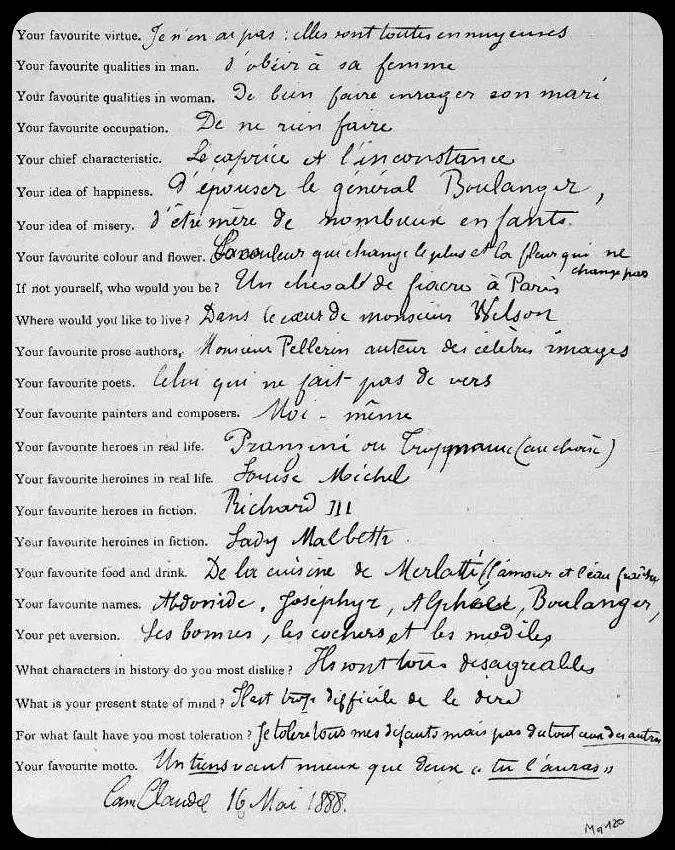 Your favourite virtue. Je n'en ai pas : elles sont toutes ennuyeuses
Your favourite qualities in man. d'obéir à sa femme
Your favourite qualities in woman. De bien faire enrager son mari
Your favourite occupation. De ne rien faire
Your chief characteristic. Le caprice et l'inconstance
Your idea of happiness. D'épouser le général Boulanger,
Your idea of misery. d'être mère de nombreux enfants.
Your favourite colour and flower. La couleur qui change le plus et la fleur qui ne
change pas
If not yourself, who would you be? Un cheval de fiacre à Paris
Where would you like to live? Dans le cœur de monsieur Wilson
Your favourite prose authors, Monsieur Pellerin auteur des célèbres images
Your favourite poets. Celui qui ne fait pas de vers
Your favourite painters and composers. Moi-même
Your favourite heroes in real life. Pranzini ou Tropmann (au choix)
Your favourite heroines in real life. Louise Michel
Your favourite heroes in fiction. Richard III
Your favourite heroines in fiction. Lady Malbeth
Your favourite food and drink. De la cuisine de Merlatti (l'amour et l'eau fraîche
Your favourite names. Abdonide, Josephyr, Alphée, Boulanger,
Your pet aversion. Les bonnes, les cochers et les modèles
What characters in history do you most dislike? Ils sont tous désagréables
What is your present state of mind? Il est trop difficile de le dire
For what fault have you most toleration? Je tolère tous mes défauts mais pas du tout ceux des autres
Your favourite motto. Un tiens vaut mieux que deux « tu l'auras »
Cam Claudel 16 Mai 1888.